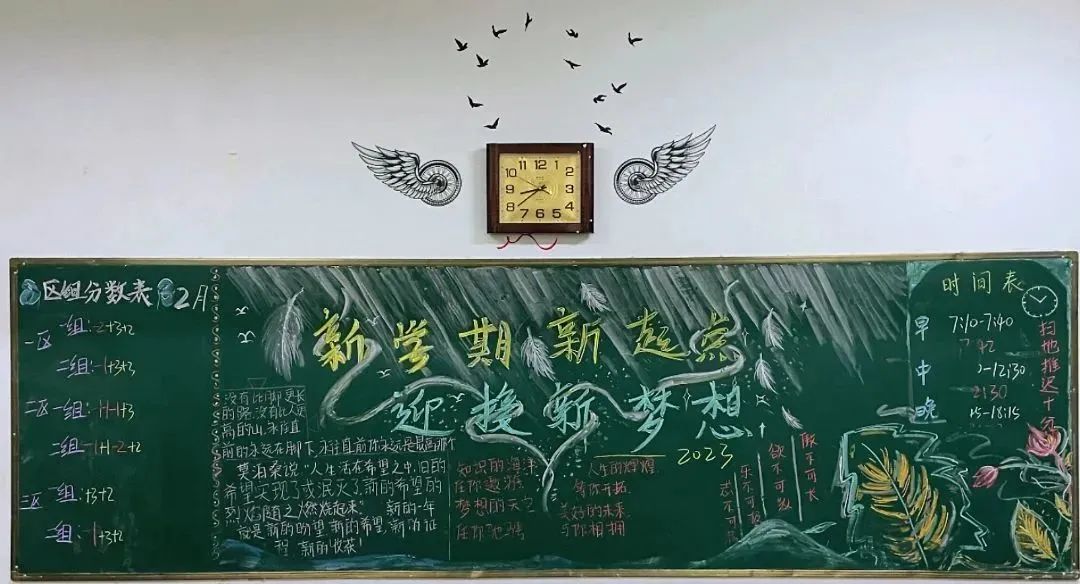 11 12 1
10 2
9 3
8 4
7 6 5
区组分数表 2月
一区 一组:-2+3+2
二组:-1+3+2
二区 一组:-1-1+3
二组:-1+1-2+2
三区 一组:+3+2
二组:-1+3+2
新学期新起点
迎接新梦想
2023
没有比脚更长
的路,没有比人更
高的山,永往直
前的永远在脚下,永往直前你永远是最
莫泊桑说:“人生活在希望之中,旧的
希望实现了或泯灭了,新的希望的
烈焰随之燃烧起来” 新的一年
就是新的盼望 新的希望,新的征
程 新的收获!
知识的海洋
任你遨游
梦想的天空
任你飞翔
人生的辉煌
等你开拓
美好的未来
与你相拥
傲不可长
欲不可纵
乐不可极
志不可
时间表
早 7:10-7:40
中 -12:30
12:30
晚 15-18:15
扫地推迟十分